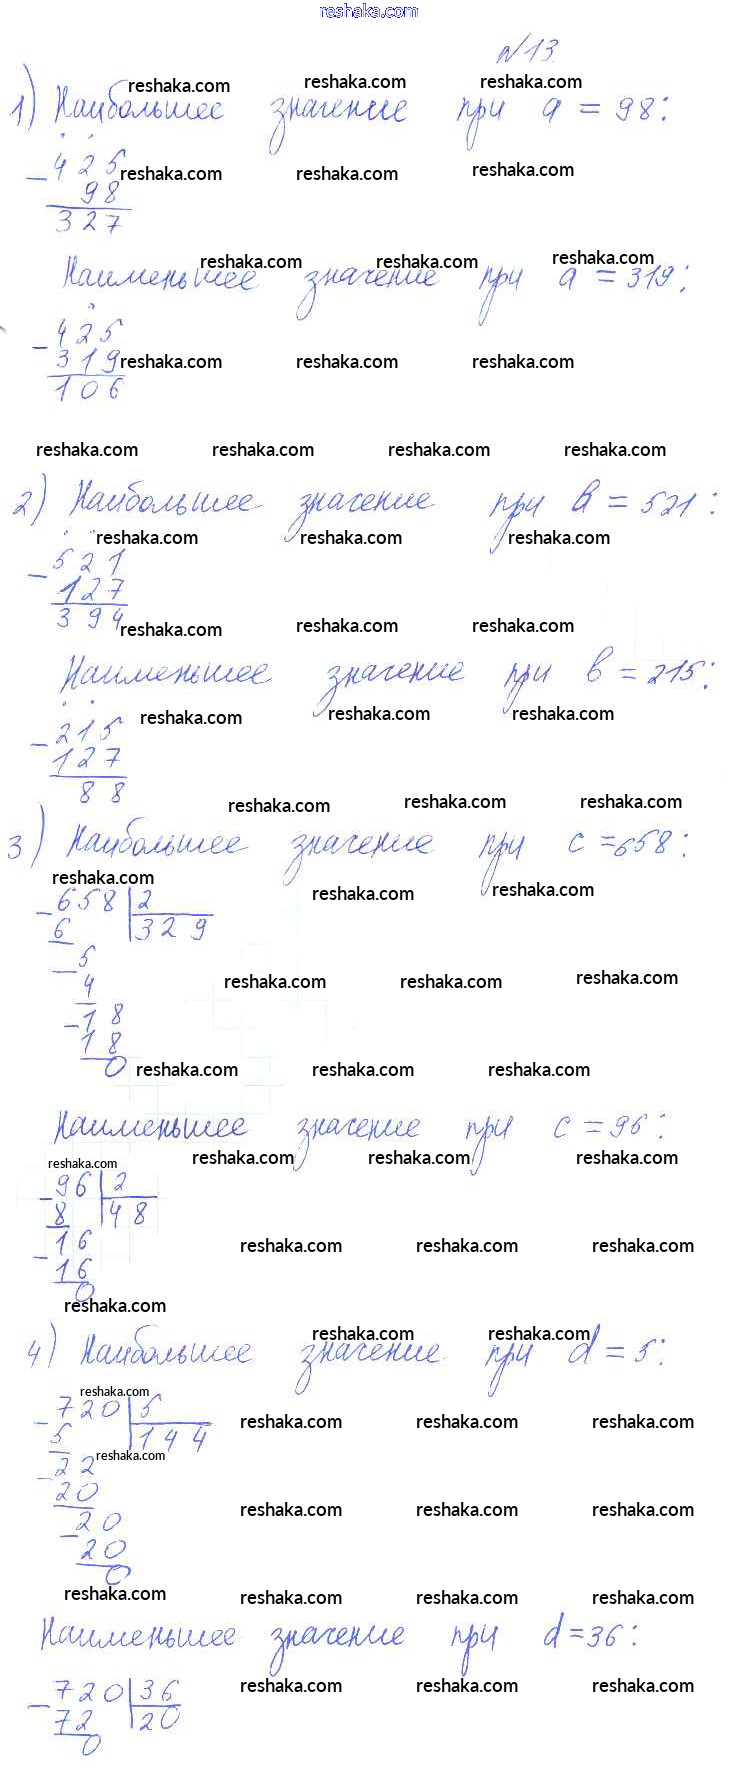 reshaka.com
№13.
reshaka.com reshaka.com reshaka.com
1) Наибольшее значение при a = 98:
- 425
reshaka.com reshaka.com reshaka.com
98
327
reshaka.com reshaka.com reshaka.com
Наименьшее значение при a = 319:
- 425
319 reshaka.com reshaka.com reshaka.com
106
reshaka.com reshaka.com reshaka.com reshaka.com
2) Наибольшее значение при b = 521:
reshaka.com reshaka.com reshaka.com
- 521
127
394 reshaka.com reshaka.com reshaka.com
Наименьшее значение при b = 215:
reshaka.com reshaka.com reshaka.com
- 215
127
88
reshaka.com reshaka.com reshaka.com
3) Наибольшее значение при c = 658:
reshaka.com reshaka.com reshaka.com
- 658 | 2
6 329
- 5
4 reshaka.com reshaka.com reshaka.com
- 18
18
0 reshaka.com reshaka.com reshaka.com
Наименьшее значение при c = 96:
reshaka.com reshaka.com reshaka.com reshaka.com
- 96 | 2
8 48
- 16 reshaka.com reshaka.com reshaka.com
16
0
reshaka.com
reshaka.com reshaka.com
4) Наибольшее значение при d = 5:
reshaka.com
- 720 | 5 reshaka.com reshaka.com reshaka.com
5 144
reshaka.com
- 22
20 reshaka.com reshaka.com reshaka.com
- 20
20
0
reshaka.com reshaka.com reshaka.com reshaka.com
Наименьшее значение при d = 36:
- 720 | 36 reshaka.com reshaka.com reshaka.com
72 20
0